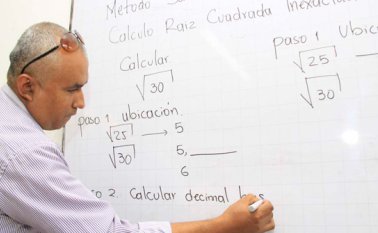 Metodo
Calculo Raiz Cuadrada
Calcular
√30
paso 1 ubicación.
√25 → 5
√30 5,____
6
paso 1 Ubic
√25
√30
2. Calcular decimal